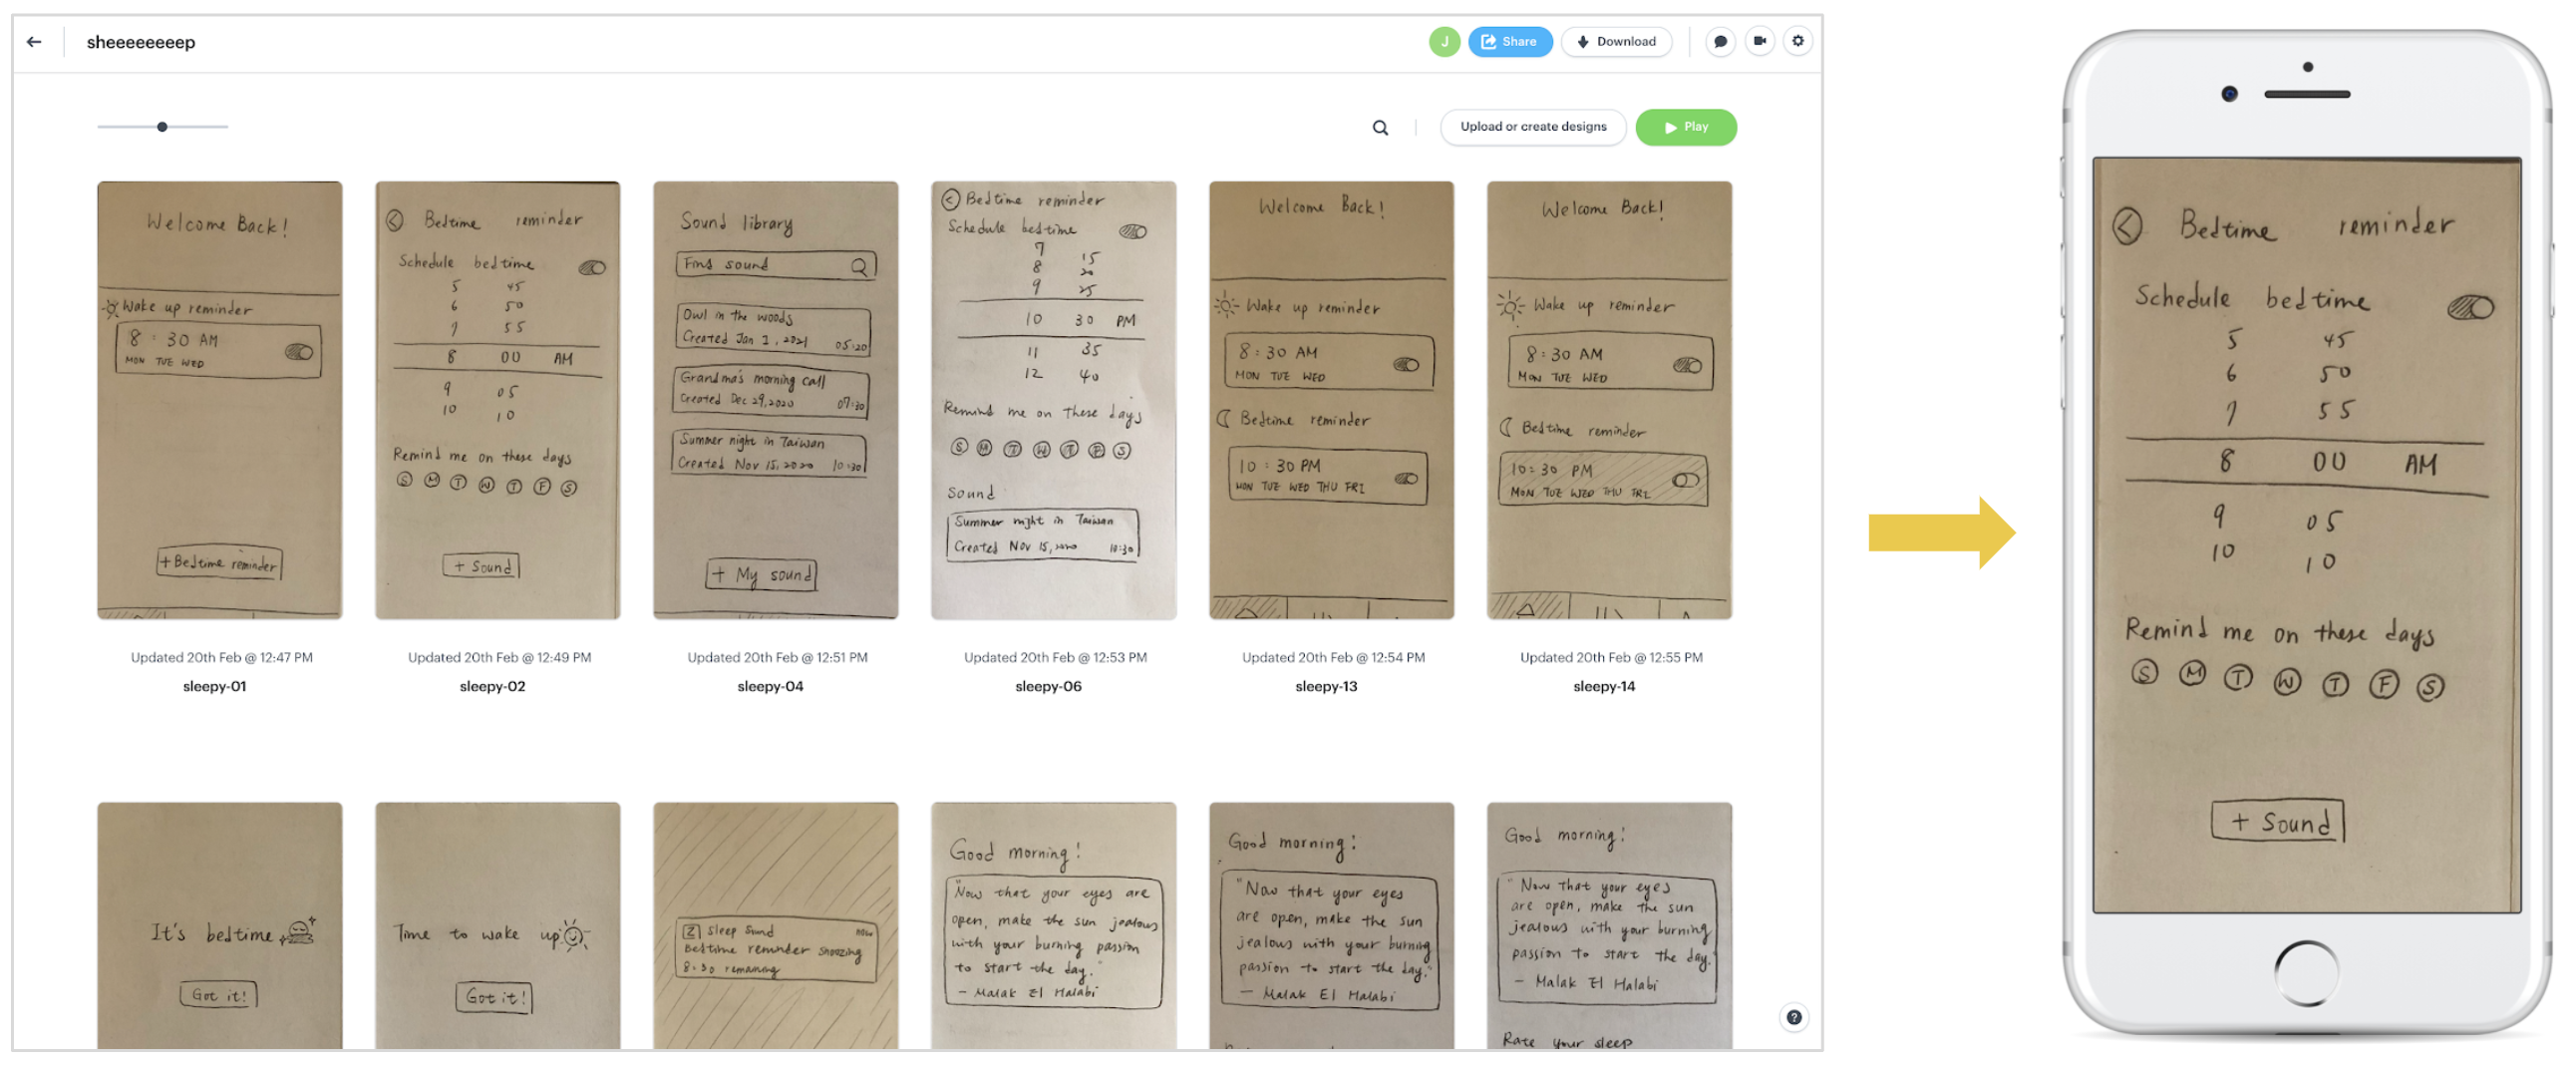 sheeeeeeeep
J
Share
Download
Upload or create designs
Play
Welcome Back!
Wake up reminder
8 : 30 AM
MON TUE WED
+ Bedtime reminder
Updated 20th Feb @ 12:47 PM
sleepy-01
< Bedtime reminder
Schedule bedtime
5 45
6 50
7 55
8 00 AM
9 05
10 10
Remind me on these days
S M T W T F S
+ Sound
Updated 20th Feb @ 12:49 PM
sleepy-02
Sound library
Find sound
Owl in the woods
Created Jan 1, 2021 05:20
Grandma's morning call
Created Dec 29, 2020 07:30
Summer night in Taiwan
Created Nov 15, 2020 10:30
+ My sound
Updated 20th Feb @ 12:51 PM
sleepy-04
< Bedtime reminder
Schedule bedtime
7 15
8 20
9 25
10 30 PM
11 35
12 40
Remind me on these days
S M T W T F S
Sound
Summer night in Taiwan
Created Nov 15, 2020 10:30
Updated 20th Feb @ 12:53 PM
sleepy-06
Welcome Back!
Wake up reminder
8:30 AM
MON TUE WED
Bedtime reminder
10:30 PM
MON TUE WED THU FRI
Updated 20th Feb @ 12:54 PM
sleepy-13
Welcome Back!
Wake up reminder
8:30 AM
MON TUE WED
Bedtime reminder
10:30 PM
MON TUE WED THU FRI
Updated 20th Feb @ 12:55 PM
sleepy-14
It's bedtime
Got it!
Time to wake up
Got it!
Z Sleep Sound now
Bedtime reminder snoozing
8:30 remaining
Good morning!
"Now that your eyes are
open, make the sun jealous
with your burning passion
to start the day."
- Malak El Halabi
Good morning!
"Now that your eyes
are open, make the sun
jealous with your burning
passion to start the day."
- Malak El Halabi
Good morning!
"Now that your eyes
are open, make the sun
jealous with your burning
passion to start the day."
- Malak El Halabi
Rate your sleep
?
< Bedtime reminder
Schedule bedtime
5 45
6 50
7 55
8 00 AM
9 05
10 10
Remind me on these days
S M T W T F S
+ Sound